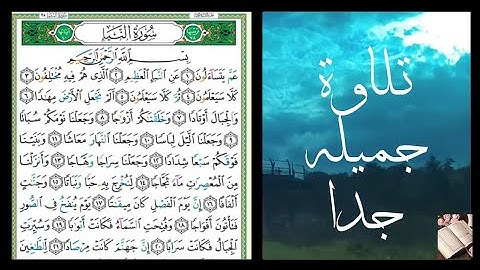 سُورَةُ النَّبَإِ
بِسْمِ اللَّهِ الرَّحْمَٰنِ الرَّحِيمِ
عَمَّ يَتَسَاءَلُونَ ١ عَنِ النَّبَإِ الْعَظِيمِ ٢ الَّذِي هُمْ فِيهِ مُخْتَلِفُونَ ٣
كَلَّا سَيَعْلَمُونَ ٤ ثُمَّ كَلَّا سَيَعْلَمُونَ ٥ أَلَمْ نَجْعَلِ الْأَرْضَ مِهَٰدًا ٦
وَالْجِبَالَ أَوْتَادًا ٧ وَخَلَقْنَٰكُمْ أَزْوَٰجًا ٨ وَجَعَلْنَا نَوْمَكُمْ سُبَاتًا
٩ وَجَعَلْنَا اللَّيْلَ لِبَاسًا ١٠ وَجَعَلْنَا النَّهَارَ مَعَاشًا ١١ وَبَنَيْنَا
فَوْقَكُمْ سَبْعًا شِدَادًا ١٢ وَجَعَلْنَا سِرَاجًا وَهَّاجًا ١٣ وَأَنزَلْنَا
مِنَ الْمُعْصِرَٰتِ مَاءً ثَجَّاجًا ١٤ لِّنُخْرِجَ بِهِ حَبًّا وَنَبَاتًا ١٥ وَجَنَّٰتٍ
أَلْفَافًا ١٦ إِنَّ يَوْمَ الْفَصْلِ كَانَ مِيقَٰتًا ١٧ يَوْمَ يُنفَخُ فِي الصُّورِ
فَتَأْتُونَ أَفْوَاجًا ١٨ وَفُتِحَتِ السَّمَاءُ فَكَانَتْ أَبْوَٰبًا ١٩ وَسُيِّرَتِ
الْجِبَالُ فَكَانَتْ سَرَابًا ٢٠ إِنَّ جَهَنَّمَ كَانَتْ مِرْصَادًا ٢١ لِّلطَّٰغِينَ
تلاوة
جميله
جدا